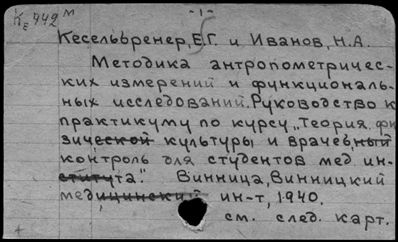 Kе 442 м
- 1 -
Кесельбренер, Е.Г. и Иванов, Н.А.
Методика антропометричес-
ких измерений и функциональ-
ных исследований. Руководство к
практикуму по курсу „Теория фи
зической культуры и врачебный
контроль для студентов мед. ин-
ститута". Винница, Винницкий
медицинский ин-т, 1940.
см. след. карт.